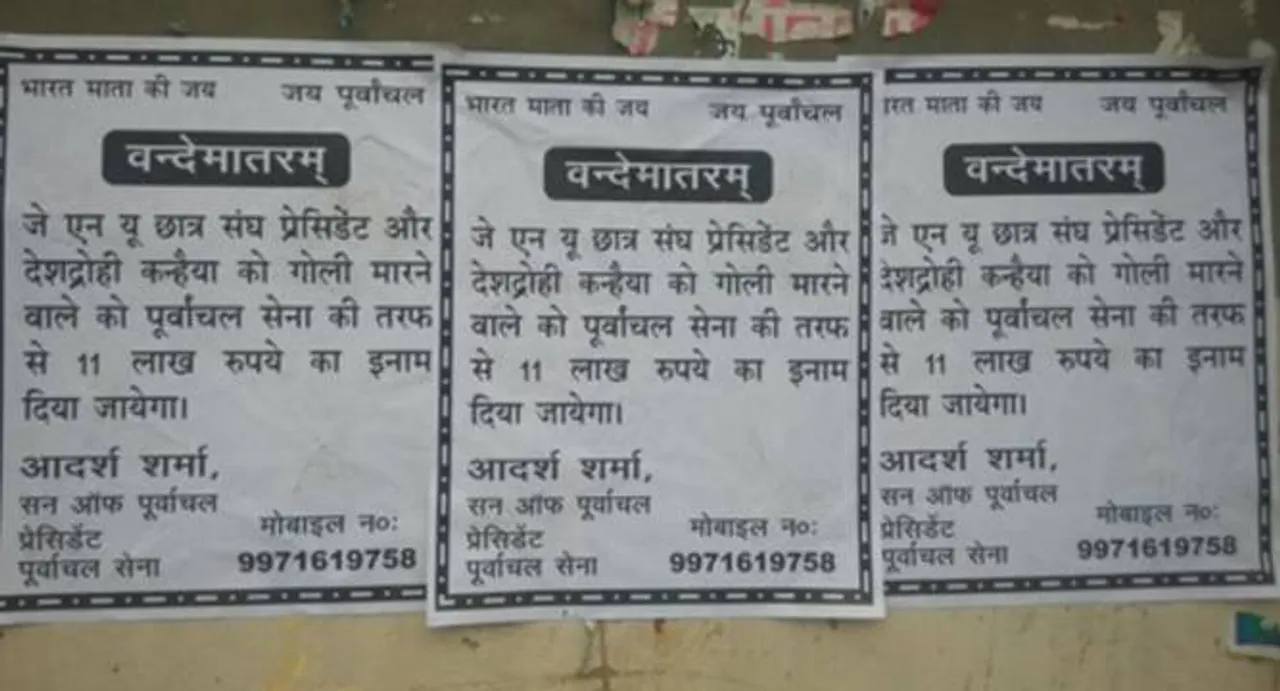 भारत माता की जय जय पूर्वांचल
वन्देमातरम्
जे एन यू छात्र संघ प्रेसिडेंट और
देशद्रोही कन्हैया को गोली मारने
वाले को पूर्वांचल सेना की तरफ
से 11 लाख रुपये का इनाम
दिया जायेगा।
आदर्श शर्मा,
सन ऑफ पूर्वाचल
प्रेसिडेंट
मोबाइल न०:
पूर्वाचल सेना
9971619758
भारत माता की जय जय पूर्वांचल
वन्देमातरम्
जे एन यू छात्र संघ प्रेसिडेंट और
देशद्रोही कन्हैया को गोली मारने
वाले को पूर्वांचल सेना की तरफ
से 11 लाख रुपये का इनाम
दिया जायेगा।
आदर्श शर्मा,
सन ऑफ पूर्वाचल
प्रेसिडेंट
मोबाइल न०:
पूर्वाचल सेना
9971619758
ारत माता की जय जय पूर्वांचल
वन्देमातरम्
जे एन यू छात्र संघ प्रेसिडेंट और
देशद्रोही कन्हैया को गोली मारने
वाले को पूर्वांचल सेना की तरफ
से 11 लाख रुपये का इनाम
दिया जायेगा।
आदर्श शर्मा,
सन ऑफ पूर्वाचल
प्रेसिडेंट
मोबाइल न०:
पूर्वाचल सेना
9971619758